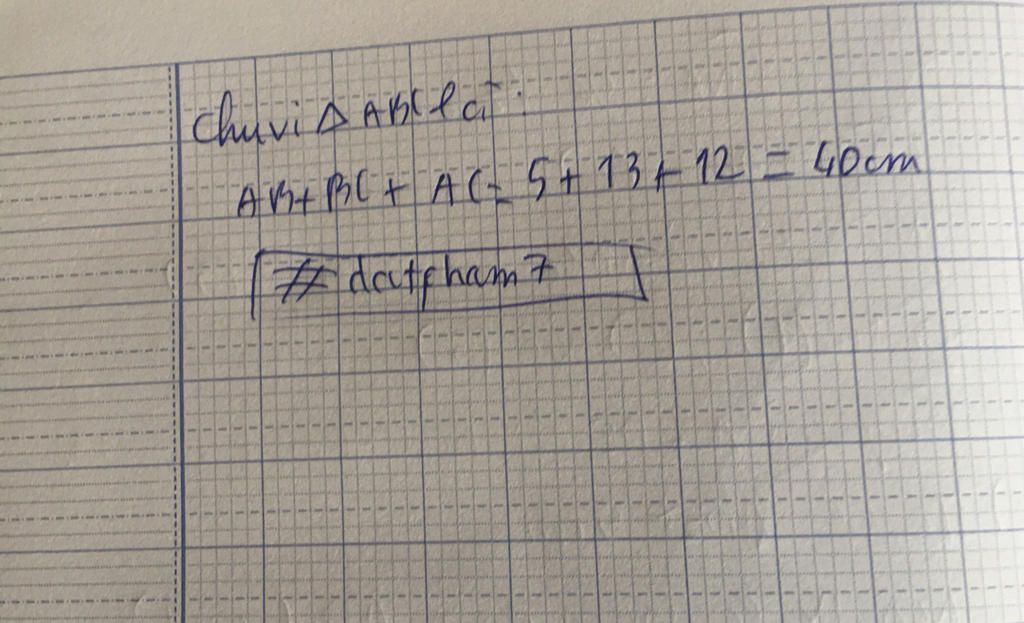 Chu vi Δ ABC là:
AB + BC + AC = 5 + 13 + 12 = 40cm
# datpham7